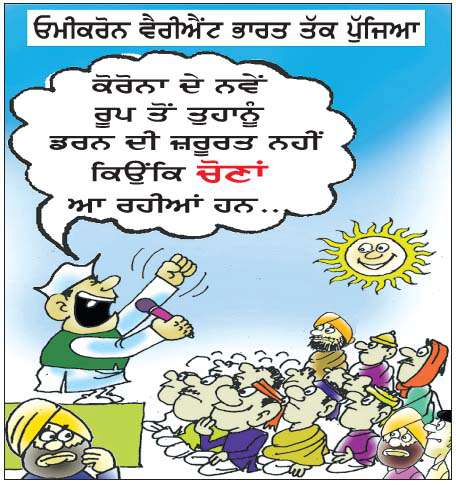 ਓਮੀਕਰੋਨ ਵੈਰੀਐਂਟ ਭਾਰਤ ਤੱਕ ਪੁੱਜਿਆ
ਕੋਰੋਨਾ ਦੇ ਨਵੇਂ
ਰੂਪ ਤੋਂ ਤੁਹਾਨੂੰ
ਡਰਨ ਦੀ ਜ਼ਰੂਰਤ ਨਹੀਂ
ਕਿਉਂਕਿ ਚੋਣਾਂ
ਆ ਰਹੀਆਂ ਹਨ...